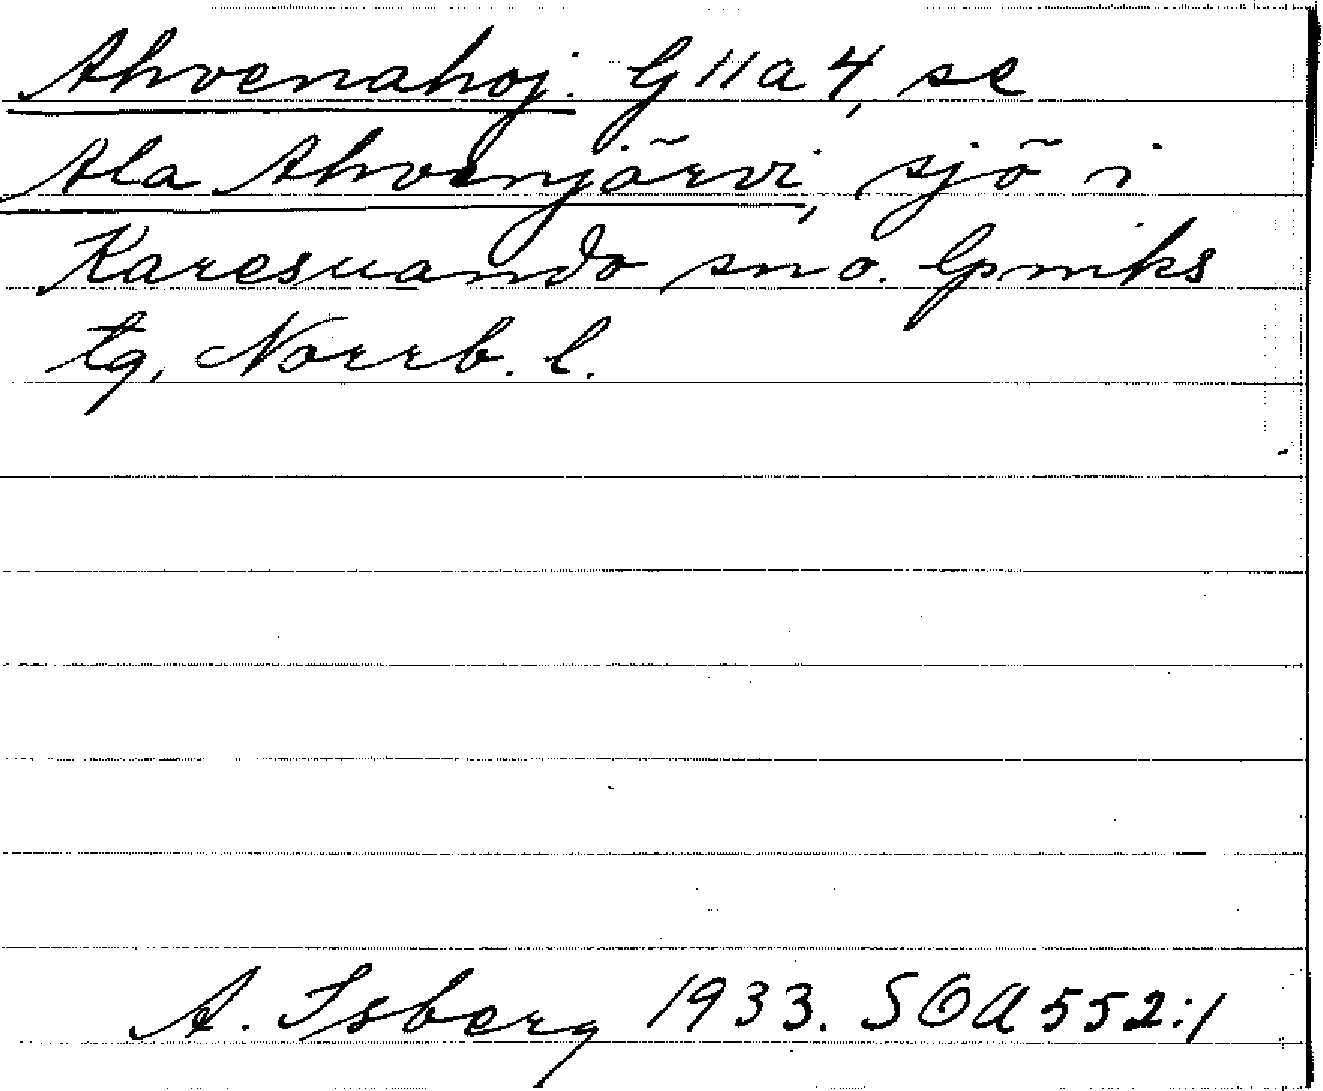 Ahvenahoj. G 11 a 4, se
Ala Ahvenjärvi, sjö i
Karesuando sn o. lpmks
tg, Norrb. l.
A. Isberg 1933. SOA 552:1